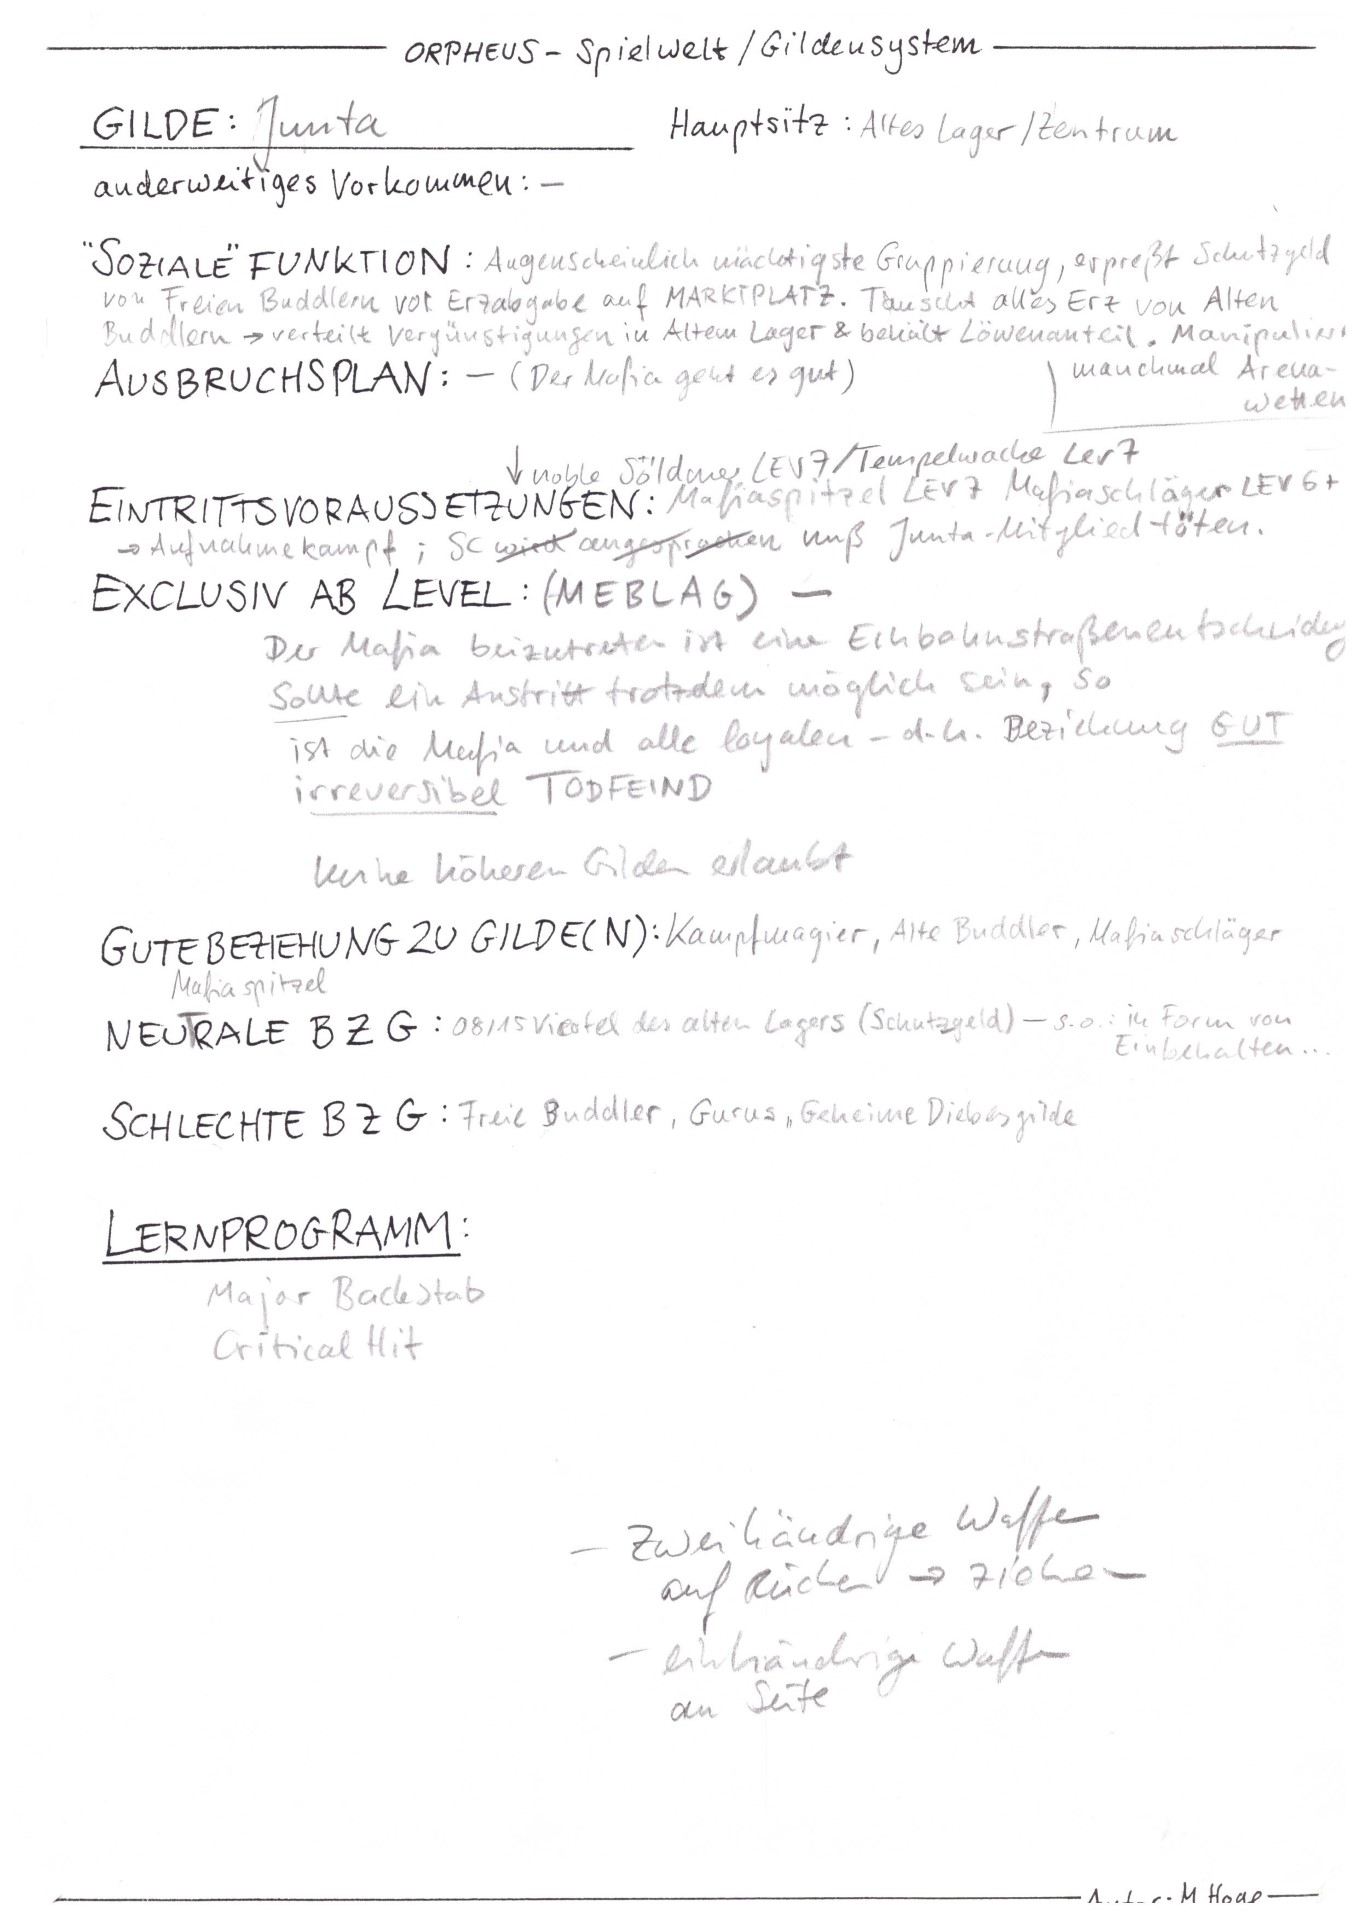 ORPHEUS - Spielwelt / Gildensystem
GILDE: Junta
Hauptsitz: Altes Lager/Zentrum
anderweitiges Vorkommen: -
"SOZIALE" FUNKTION: Augenscheinlich mächtigste Gruppierung, erpreßt Schutzgeld
von Freien Buddlern vor Erzabgabe auf MARKTPLATZ. Tauscht alles Erz von Alten
Buddlern → verteilt Vergünstigungen in Altem Lager & behält Löwenanteil. Manipuliert
manchmal Arena-
wetten
AUSBRUCHSPLAN: - (Der Mafia geht es gut)
↓ noble Söldner LEV7/Tempelwache Lev7
EINTRITTSVORAUSSETZUNGEN: Mafiaspitzel LEV7 Mafiaschläger LEV 6+
→ Aufnahmekampf; SC wird angesprochen muß Junta-Mitglied töten.
EXCLUSIV AB LEVEL: (MEBLAG) -
Der Mafia beizutreten ist eine Einbahnstraßenentscheidung
Sollte ein Austritt trotzdem möglich sein, so
ist die Mafia und alle loyalen - d.h. Beziehung GUT
irreversibel TODFEIND
keine höheren Gilden erlaubt
GUTE BEZIEHUNG ZU GILDE(N): Kampfmagier, Alte Buddler, Mafiaschläger
Mafiaspitzel
NEUTRALE BZG: 08/15 Viertel des alten Lagers (Schutzgeld) - s.o.: in Form von
Einbehalten...
SCHLECHTE BZG: Freie Buddler, Gurus, Geheime Diebesgilde
LERNPROGRAMM:
Major Backstab
Critical Hit
- Zweihändrige Waffe
auf Rücken → ziehen
- einhändrige Waffe
an Seite
Autor: M. Hoge